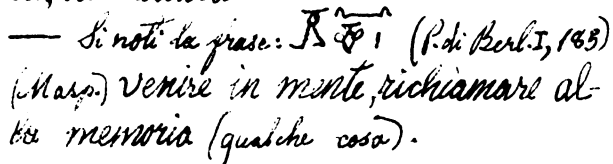 — Si noti la frase: (P. di Berl. I, 183)
(Masp.) venire in mente, richiamare al-
la memoria (qualche cosa).